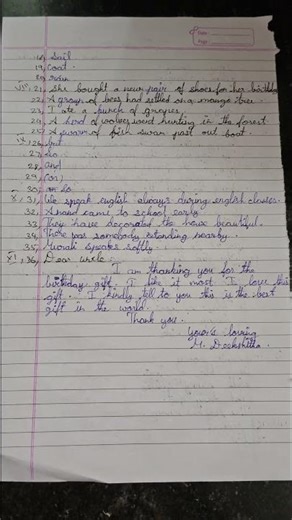 Date:
Page:
18, Sail
19, Coat
20,
VIII, 21, She bought a new pair of shoes for her birthday
22, A group of bees had settled on a mango tree.
23, I ate a bunch of grapes.
24, A herd of wolves went hunting in the forest.
25, A swarm of fish swam past out boat.
IX, 26, but
27, so
28, and
29, (or)
30, an so
X, 31, We speak english always during english classes.
32, Anand came to school early.
33, They have decorated the house beautiful.
34, There was somebody standing nearby.
35, Murali speaks softly.
XI, 36, Dear uncle,
I am thanking you for the
birthday gift. I like it most I love this
gift. I kindly tell to you this is the best
gift in the world.
Thank you.
Your's loving
M.